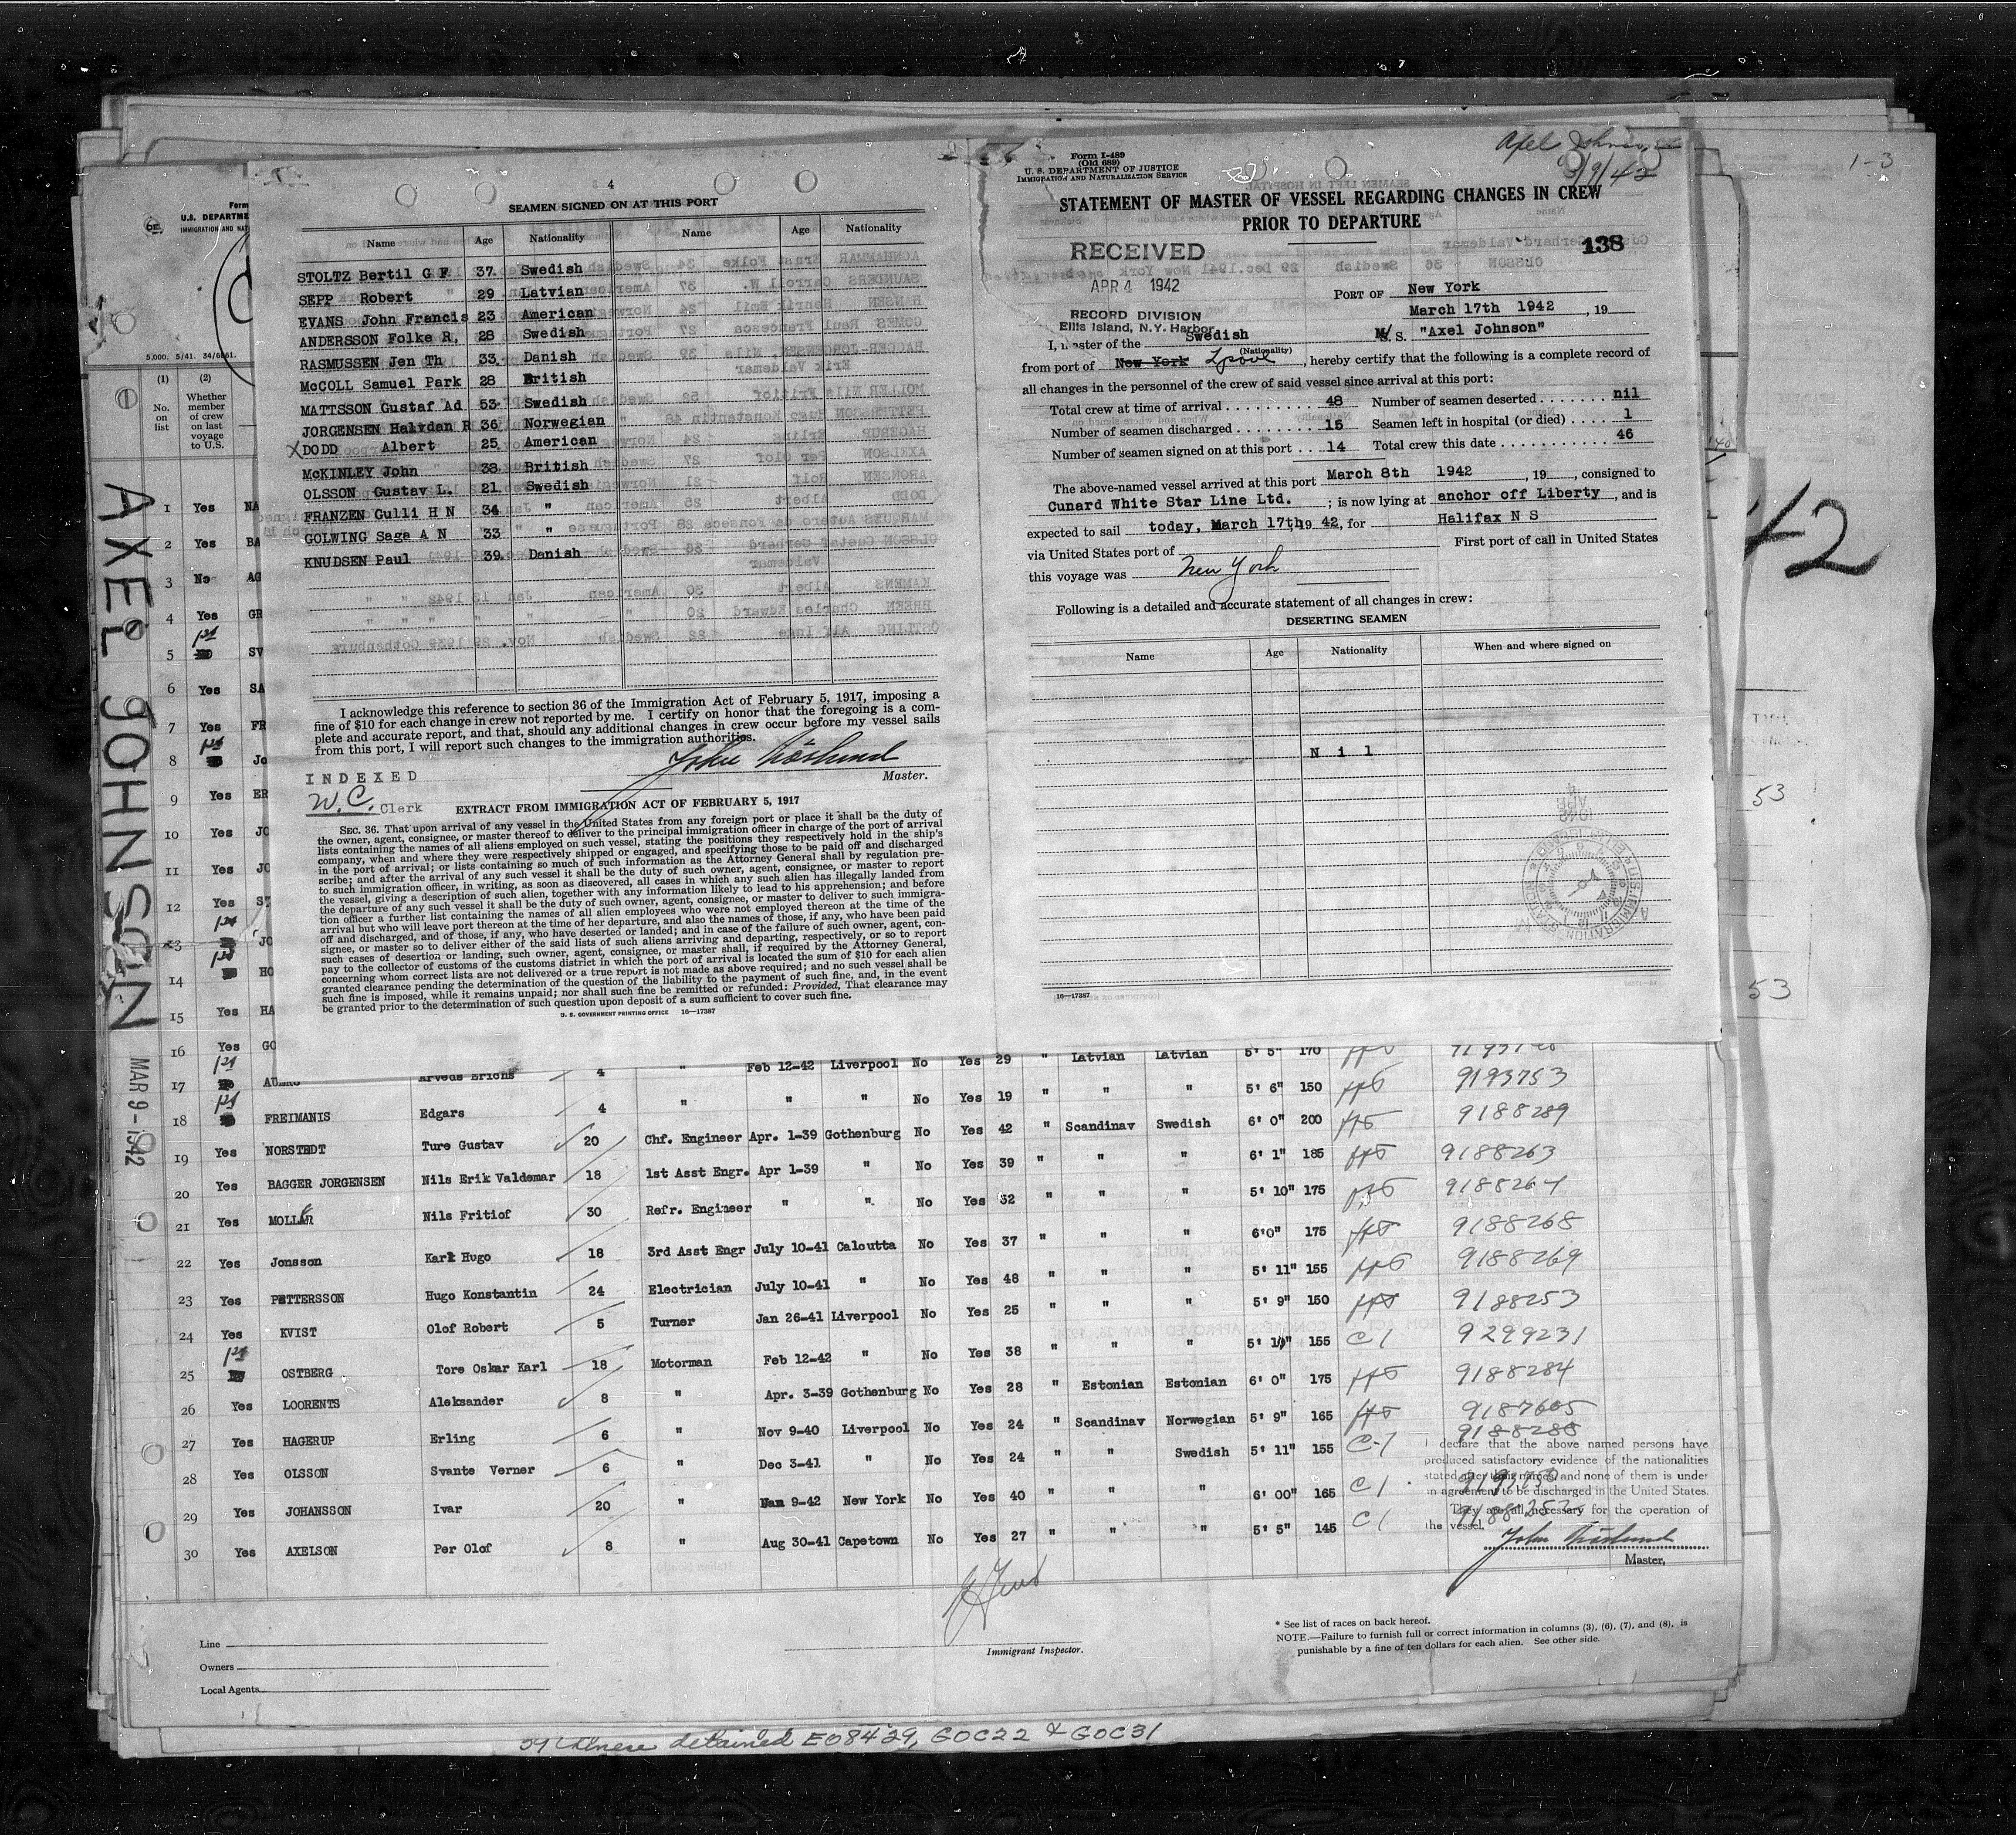 Axel Johnson
3/9/42
1-3
4
SEAMEN SIGNED ON AT THIS PORT
Name Age Nationality Name Age Nationality
STOLTZ Bertil G F 37 Swedish
SEPP Robert 29 Latvian
EVANS John Francis 23 American
ANDERSSON Folke R, 28 Swedish
RASMUSSEN Jen Th 33 Danish
McCOLL Samuel Park 28 British
MATTSSON Gustaf Ad 53 Swedish
JORGENSEN Halvdan R 36 Norwegian "
X DODD Albert 25 American
McKINLEY John 38 British
OLSSON Gustav L. 21 Swedish
FRANZEN Gulli H N 34 "
GOLWING Saga A N 33 "
KNUDSEN Paul 39 Danish
I acknowledge this reference to section 36 of the Immigration Act of February 5, 1917, imposing a
fine of $10 for each change in crew not reported by me. I certify on honor that the foregoing is a com-
plete and accurate report, and that, should any additional changes in crew occur before my vessel sails
from this port, I will report such changes to the immigration authorities.
Master.
INDEXED
W.C. Clerk
EXTRACT FROM IMMIGRATION ACT OF FEBRUARY 5, 1917
SEC. 36. That upon arrival of any vessel in the United States from any foreign port or place it shall be the duty of
the owner, agent, consignee, or master thereof to deliver to the principal immigration officer in charge of the port of arrival
lists containing the names of all aliens employed on such vessel, stating the positions they respectively hold in the ship's
company, when and where they were respectively shipped or engaged, and specifying those to be paid off and discharged
in the port of arrival; or lists containing so much of such information as the Attorney General shall by regulation pre-
scribe; and after the arrival of any such vessel it shall be the duty of such owner, agent, consignee, or master to report
to such immigration officer, in writing, as soon as discovered, all cases in which any such alien has illegally landed from
the vessel, giving a description of such alien, together with any information likely to lead to his apprehension; and before
the departure of any such vessel it shall be the duty of such owner, agent, consignee, or master to deliver to such immigra-
tion officer a further list containing the names of all alien employees who were not employed thereon at the time of the
arrival but who will leave port thereon at the time of her departure, and also the names of those, if any, who have been paid
off and discharged, and of those, if any, who have deserted or landed; and in case of the failure of such owner, agent, con-
signee, or master so to deliver either of the said lists of such aliens arriving and departing, respectively, or so to report
such cases of desertion or landing, such owner, agent, consignee, or master shall, if required by the Attorney General,
pay to the collector of customs of the customs district in which the port of arrival is located the sum of $10 for each alien
concerning whom correct lists are not delivered or a true report is not made as above required; and no such vessel shall be
granted clearance pending the determination of the question of the liability to the payment of such fine, and, in the event
such fine is imposed, while it remains unpaid; nor shall such fine be remitted or refunded: Provided, That clearance may
be granted prior to the determination of such question upon deposit of a sum sufficient to cover such fine.
U. S. GOVERNMENT PRINTING OFFICE 16—17387
Form I-489
(Old 689)
U. S. DEPARTMENT OF JUSTICE
IMMIGRATION AND NATURALIZATION SERVICE
STATEMENT OF MASTER OF VESSEL REGARDING CHANGES IN CREW
PRIOR TO DEPARTURE
138
RECEIVED
APR 4 1942
RECORD DIVISION
Ellis Island, N.Y. Harbor
PORT OF New York
March 17th 1942, 19
I, master of the Swedish M/S. S. "Axel Johnson"
(Nationality)
from port of New York Lpool, hereby certify that the following is a complete record of
all changes in the personnel of the crew of said vessel since arrival at this port:
Total crew at time of arrival 48 Number of seamen deserted nil
Number of seamen discharged 15 Seamen left in hospital (or died) 1
Number of seamen signed on at this port 14 Total crew this date 46
The above-named vessel arrived at this port March 8th 1942, 19, consigned to
Cunard White Star Line Ltd.; is now lying at anchor off Liberty, and is
expected to sail today, March 17th, 19 42, for Halifax N S
via United States port of First port of call in United States
this voyage was New York
Following is a detailed and accurate statement of all changes in crew:
DESERTING SEAMEN
Name Age Nationality When and where signed on
N i l
16—17387
42
53
53
Form
U.S. DEPARTME
IMMIGRATION AND NAT
5,000. 5/41. 34/6661.
(1) (2)
No. on list
Whether member of crew on last voyage to U.S.
AXEL JOHNSON
MAR 9-1942
1 Yes NA
2 Yes BA
3 No AG
4 Yes GR
5 1st SV
6 Yes SA
7 Yes FR
8 1st Jo
9 Yes ER
10 Yes JO
11 Yes JO
12 Yes ST
13 1st JO
14 1st HO
15 Yes HA
16 Yes GO
Feb 12-42 Liverpool No Yes 29 " Latvian Latvian 5' 5" 170
17 1st 4 " " " No Yes 19 " " " 5' 6" 150 9193753
18 1st FREIMANIS Edgars 4
19 Yes NORSTEDT Ture Gustav 20 Chf. Engineer Apr. 1-39 Gothenburg No Yes 42 " Scandinav Swedish 6' 0" 200 9188289
20 Yes BAGGER JORGENSEN Nils Erik Valdemar 18 1st Asst Engr. Apr 1-39 " No Yes 39 " " " 6' 1" 185 9188263
21 Yes MOLLER Nils Fritiof 30 Refr. Engineer " " No Yes 52 " " " 5' 10" 175 9188264
22 Yes Jonsson Karl Hugo 18 3rd Asst Engr July 10-41 Calcutta No Yes 37 " " " 6'0" 175 9188268
23 Yes PETTERSSON Hugo Konstantin 24 Electrician July 10-41 " No Yes 48 " " " 5' 11" 155 9188269
24 Yes KVIST Olof Robert 5 Turner Jan 26-41 Liverpool No Yes 25 " " " 5' 9" 150 9188253
25 1st OSTBERG Tore Oskar Karl 18 Motorman Feb 12-42 " No Yes 38 " " " 5' 10" 155 C1 9299231
26 Yes LOORENTS Aleksander 8 " Apr. 3-39 Gothenburg No Yes 28 " Estonian Estonian 6' 0" 175 9188284
27 Yes HAGERUP Erling 6 " Nov 9-40 Liverpool No Yes 24 " Scandinav Norwegian 5' 9" 165 9187605
28 Yes OLSSON Svante Verner 6 " Dec 3-41 " No Yes 24 " " Swedish 5' 11" 155 C-1 9188288
29 Yes JOHANSSON Ivar 20 " Jan 9-42 New York No Yes 40 " " " 6' 00" 165 C1
30 Yes AXELSON Per Olof 8 " Aug 30-41 Capetown No Yes 27 " " " 5' 5" 145 C1
I declare that the above named persons have
produced satisfactory evidence of the nationalities
stated after their names, and none of them is under
an agreement to be discharged in the United States.
They are all necessary for the operation of
the vessel.
Master,
Immigrant Inspector.
Line
Owners
Local Agents
* See list of races on back hereof.
NOTE.—Failure to furnish full or correct information in columns (3), (6), (7), and (8), is
punishable by a fine of ten dollars for each alien. See other side.
Chinese detained E08429, GOC22 & GOC31